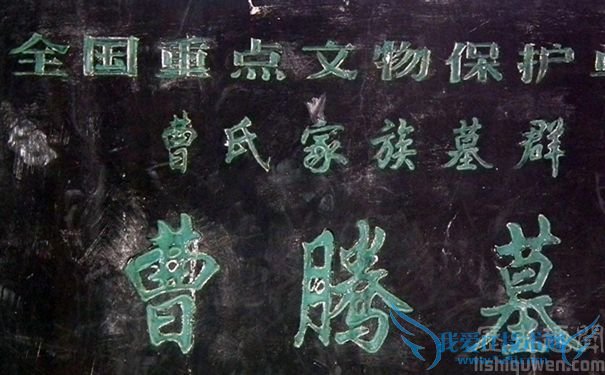 全国重点文物保护
曹氏家族墓群
曹腾墓
lishiquwen.com